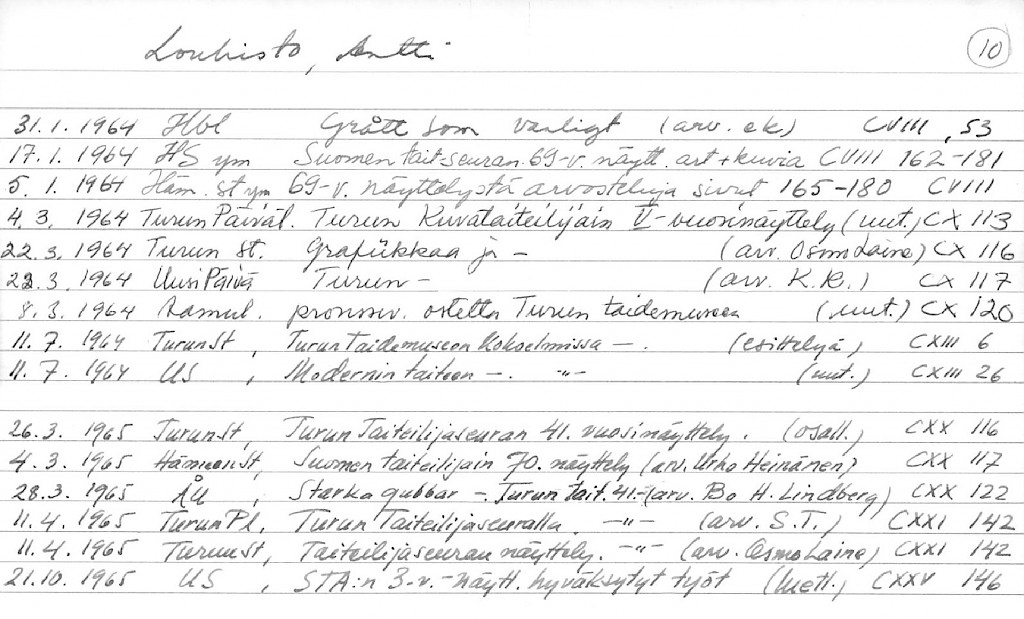 Louhisto, Antti 10
31.1.1964 Hbl Grått som vanligt (arv. ek.) CVIII, 53
17.1.1964 HS ym Suomen tait-seuran 69-v. näytt. art + kuvia CVIII 162-181
5.1.1964 Häm. st ym 69-v. näyttelystä arvosteluja sivut 165-180 CVIII
4.3.1964 Turun Päiväl. Turun Kuvataiteilijain V-vuosinäyttely (uut.) CX 113
22.3.1964 Turun St. Grafiikkaa ja - (arv. Osmo Laine) CX 116
22.3.1964 Uusi Päivä Turun - (arv. K.K.) CX 117
8.3.1964 Aamul. pronssiv. ostettu Turun taidemuseoon (uut.) CX 120
11.7.1964 Turun St, Turun Taidemuseon Kokoelmissa -. (esittelyä) CXIII 6
11.7.1964 US, Modernin taiteen -. -"- (uut.) CXIII 26
26.3.1965 Turun St, Turun Taiteilijaseuran 41. vuosinäyttely. (osall.) CXX 116
4.3.1965 Hämeen st, Suomen taiteilijain 70. näyttely (arv. Urho Heinänen) CXX 117
28.3.1965 ÅU, Starka gubbar - Turun tait. 41.- (arv. Bo H. Lindberg) CXX 122
11.4.1965 Turun Pl, Turun Taiteilijaseuralla -"- (arv. S.T.) CXXI 142
11.4.1965 Turun St, Taiteilijaseuran näyttely. -"- (arv. Osmo Laine) CXXI 142
21.10.1965 US, STA:n 3-v.-näytt. hyväksytyt työt (luett.) CXXV 146